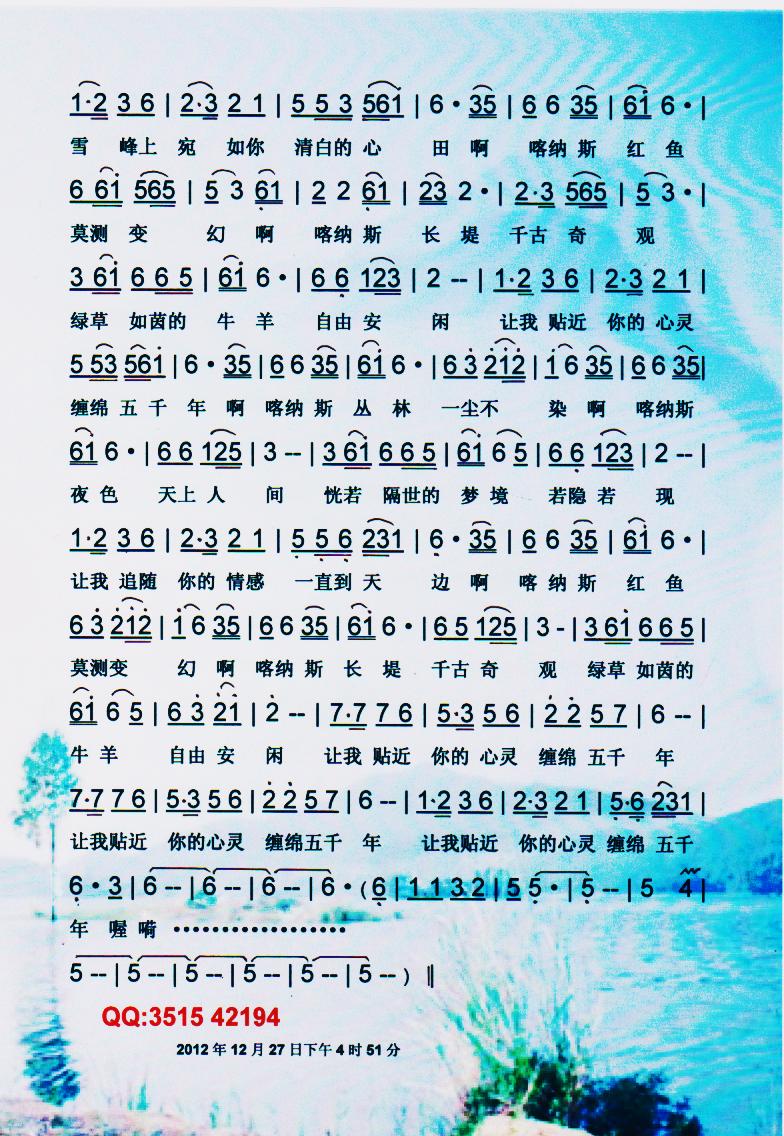 1·2 3 6 | 2·3 2 1 | 5 5 3 561 | 6 · 35 | 6 6 35 | 61 6 · |
雪 峰上 宛 如你 清白的 心 田 啊 喀纳 斯 红 鱼
6 61 565 | 5 3 61 | 2 2 61 | 23 2 · | 2·3 565 | 5 3 · |
莫测 变 幻 啊 喀纳 斯 长 堤 千古 奇 观
3 61 6 6 5 | 61 6 · | 6 6 123 | 2 -- | 1·2 3 6 | 2·3 2 1 |
绿草 如茵的 牛 羊 自由 安 闲 让我 贴近 你的 心灵
5 53 561 | 6 · 35 | 6 6 35 | 61 6 · | 6 3 212 | 1 6 35 | 6 6 35|
缠绵 五 千 年 啊 喀纳 斯 丛 林 一尘不 染 啊 喀纳斯
61 6 · | 6 6 125 | 3 -- | 3 61 6 6 5 | 61 6 5 | 6 6 123 | 2 -- |
夜 色 天上 人 间 恍若 隔世的 梦 境 若隐 若 现
1·2 3 6 | 2·3 2 1 | 5 5 6 231 | 6 · 35 | 6 6 35 | 61 6 · |
让我 追随 你的 情感 一直到 天 边 啊 喀 纳 斯 红 鱼
6 3 212 | 1 6 35 | 6 6 35 | 61 6 · | 6 5 125 | 3 - | 3 61 6 6 5 |
莫测变 幻 啊 喀纳 斯 长 堤 千古 奇 观 绿草 如茵的
61 6 5 | 6 3 21 | 2 -- | 7·7 7 6 | 5·3 5 6 | 2 2 5 7 | 6 -- |
牛 羊 自由 安 闲 让我 贴近 你的 心灵 缠绵 五千 年
7·7 7 6 | 5·3 5 6 | 2 2 5 7 | 6 -- | 1·2 3 6 | 2·3 2 1 | 5·6 231 |
让我贴近 你的心灵 缠绵五千 年 让我贴近 你的心灵 缠绵 五千
6 · 3 | 6 -- | 6 -- | 6 -- | 6 · (6 | 1 1 3 2 | 5 5 · | 5 -- | 5 4 |
年 喔 嗬 ··················
5 -- | 5 -- | 5 -- | 5 -- | 5 -- | 5 -- ) ‖
QQ:3515 42194
2012 年 12 月 27 日下午 4 时 51 分